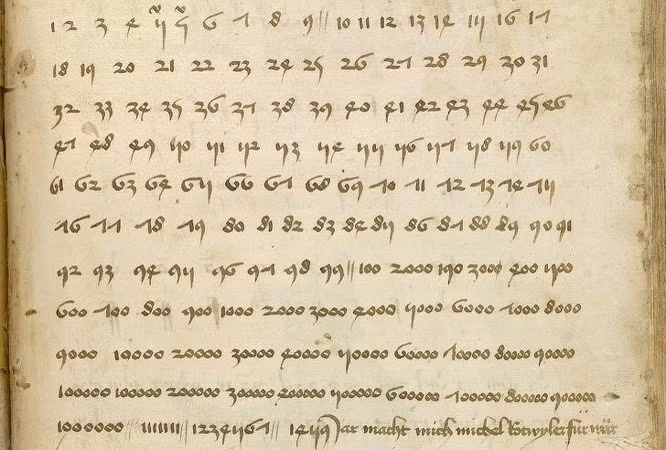 1 2 3 4 5 5 6 7 8 9 // 10 11 12 13 14 15 16 17
18 19 20 21 22 23 24 25 26 27 28 29 30 31
32 33 34 35 36 37 38 39 40 41 42 43 44 45 46
47 48 49 50 51 52 53 54 55 56 57 58 59 60
61 62 63 64 65 66 67 68 69 70 71 72 73 74 75
76 77 78 79 80 81 82 83 84 85 86 87 88 89 90 91
92 93 94 95 96 97 98 99 // 100 2000 190 3000 400 500
600 700 800 900 1000 2000 3000 4000 5000 6000 7000 8000
9000 10000 20000 30000 40000 50000 60000 70000 80000 90000
100000 100000 200000 300000 400000 500000 600000 700000 800000 900000
1000000 // 11111111 // 1234567 // 1459 macht mich michel Rotwyler für